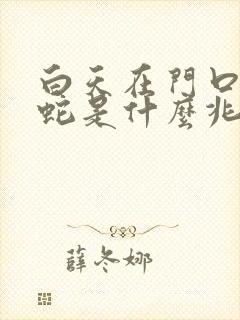 白天在門口
蛇是什麼兆
薛冬娜